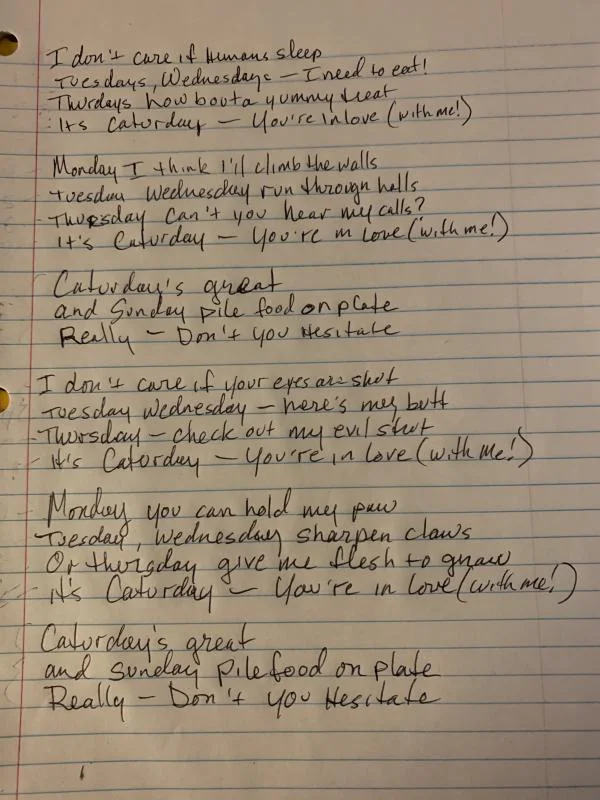 I don't care if Humans sleep
Tuesdays, Wednesdays – I need to eat!
Thurdays how bouta yummy treat
It's Caturday – You're in love (with me!)
Monday I think I'll climb the walls
Tuesday Wednesday run through halls
Thursday Can't you hear my calls?
It's Caturday – You're in Love (with me!)
Caturday's great
and Sunday pile food on plate
Really – Don't You Hesitate
I don't care if your eyes are shut
Tuesday Wednesday – here's my butt
Thursday – check out my evil strut
It's Caturday – You're in love (with me!)
Monday you can hold my paw
Tuesday, Wednesday sharpen claws
Or thursday give me flesh to gnaw
it's Caturday – You're in love (with me!)
Caturday's great
and Sunday pile food on plate
Really – Don't you Hesitate